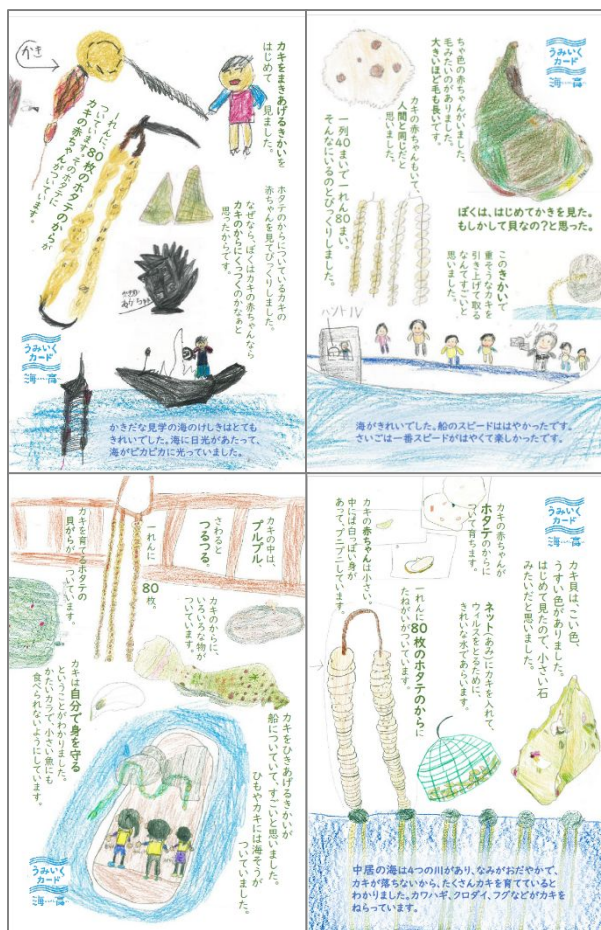 かき
カキをまきあげるきかいを
はじめて 見ました。
一れんに、
80枚のホタテのからが
ついています。そのホタテに
カキの赤ちゃんがついています。
ホタテのからについているカキの
赤ちゃんを見てびっくりしました。
なぜなら、ぼくはカキの赤ちゃんなら
カキのからにくっつくのかなぁと
思ったからです。
うみいく
カード
海…高
かきだな見学の海のけしきはとても
きれいでした。海に日光があたって、
海がピカピカに光っていました。
うみいく
カード
海…高
ちゃ色の赤ちゃんがいました。
毛みたいのがありました。
大きいほど毛も長いです。
カキの赤ちゃんもいて、
人間と同じだと
思いました。
一列40まいで一れん80まい。
そんなにいるのとびっくりしました。
ぼくは、はじめてかきを見た。
もしかして貝なの?と思った。
このきかいで
重そうなカキを
引き上げて取る
なんてすごいと
思いました。
海がきれいでした。船のスピードははやかったです。
さいごは一番スピードがはやくて楽しかったです。
カキの中は、
プルプル、
さわると
つるつる。
一れんに
80枚。
カキを育てるホタテの
貝がらが
ついています。
カキのからに、
いろいろな物が
ついています。
カキは自分で身を守る
ということがわかりました。
かたいカラで、小さい魚にも
食べられないようにしています。
カキをひきあげるきかいが
船についていて、すごいと思いました。
ひもやカキには海そうが
ついていました。
うみいく
カード
海…高
うみいく
カード
海…高
カキ貝は、こい色、
うすい色がありました。
はじめて見たので、小さい石
みたいだと思いました。
カキの赤ちゃんが
ホタテのからに
ついて育ちます。
カキの赤ちゃんは小さい。
中には白っぽい身が
あって、プニプニしています。
ネット(あみ)にカキを入れて、
ウィルスをとるために、
きれいな水であらいます。
一れんに80枚のホタテのからに
たねがいがついています。
中居の海は4つの川があり、なみがおだやかで、
カキが落ちないから、たくさんカキを育てていると
わかりました。カワハギ、クロダイ、フグなどがカキを
ねらっています。